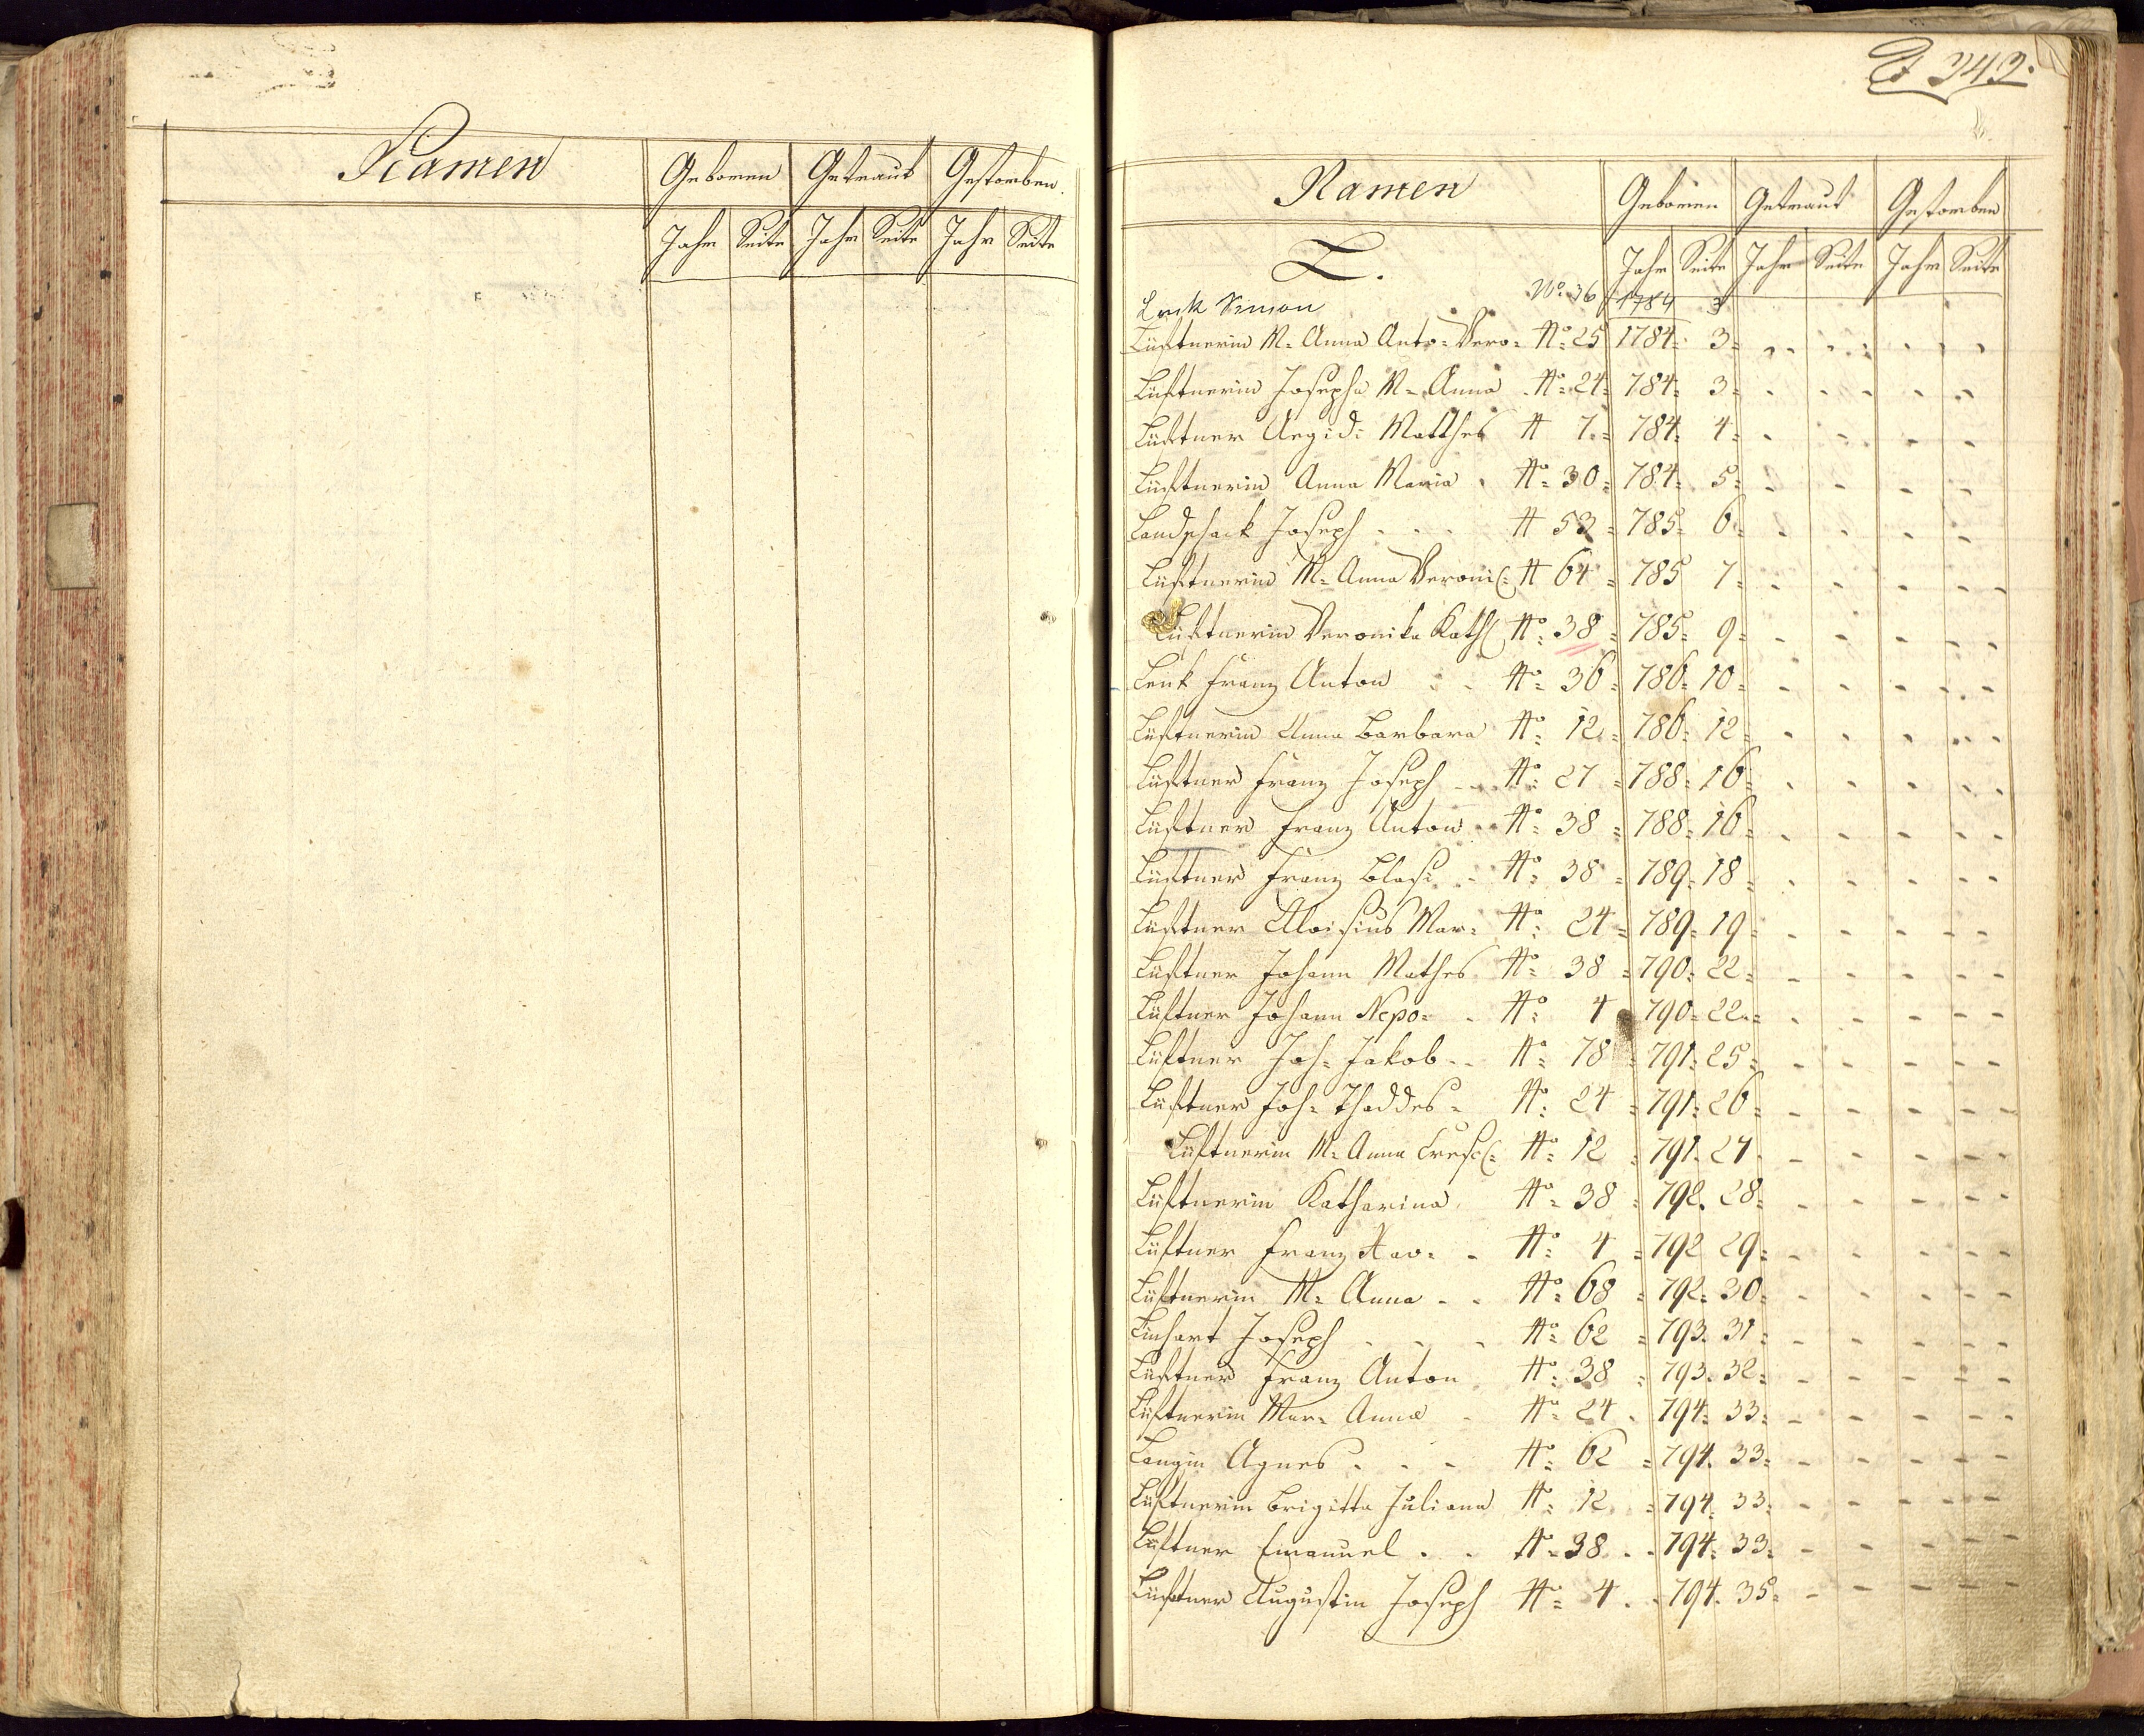 Namen Geboren Getraut Gestorben.
Jahr Seite Jahr Seite Jahr Seite
242.
Namen Geboren Getraut Gestorben
L. Jahr Seite Jahr Seite Jahr Seite
Lenk Simon No. 36 1784 3
Lüftnerin M: Anna Anto: Vero: No: 25 1784: 3:
Lüftnerin Josepha M: Anna No: 24: 784: 3:
Lüftner Aegidi Matthes N 7: 784: 4:
Lüftnerin Anna Maria No: 30: 784: 5:
Landschack Joseph N 53: 785: 6:
Lüftnerin M: Anna Veronic: N 64: 785 7:
Lüftnerin Veronika Kath: No: 38: 785: 9:
Lenk Franz Anton No: 36: 786: 10:
Lüftnerin Anna Barbara No: 12: 786: 12:
Lüftner Franz Joseph No: 27: 788: 16:
Lüftner Franz Anton No: 38: 788: 16:
Lüftner Franz Blasi No: 38: 789: 18:
Lüftner Aloisius Mar: No: 24: 789: 19:
Lüftner Johann Mathes No: 38: 790: 22:
Lüftner Johann Nepo: No: 4 790: 22:
Lüftner Joh: Jakob No: 78: 791: 25:
Lüftner Joh: Thaddes: No: 24: 791: 26:
Lüftnerin M: Anna Cresc: No: 12: 791: 27
Lüftnerin Katharina No: 38: 792: 28:
Lüftner Franz Xav: No: 4: 792 29:
Lüftnerin M: Anna No: 68: 792: 30:
Linhart Joseph No: 62: 793: 31:
Lüftner Franz Anton No: 38: 793: 32:
Lüftnerin Mar: Anna No: 24. 794: 33:
Langin Agnes No: 62: 794: 33:
Lüftnerin Brigitta Juliana No: 12: 794: 33:
Lüftner Emanuel No: 38 794: 33:
Lüftner Augustin Joseph No: 4 794: 35: